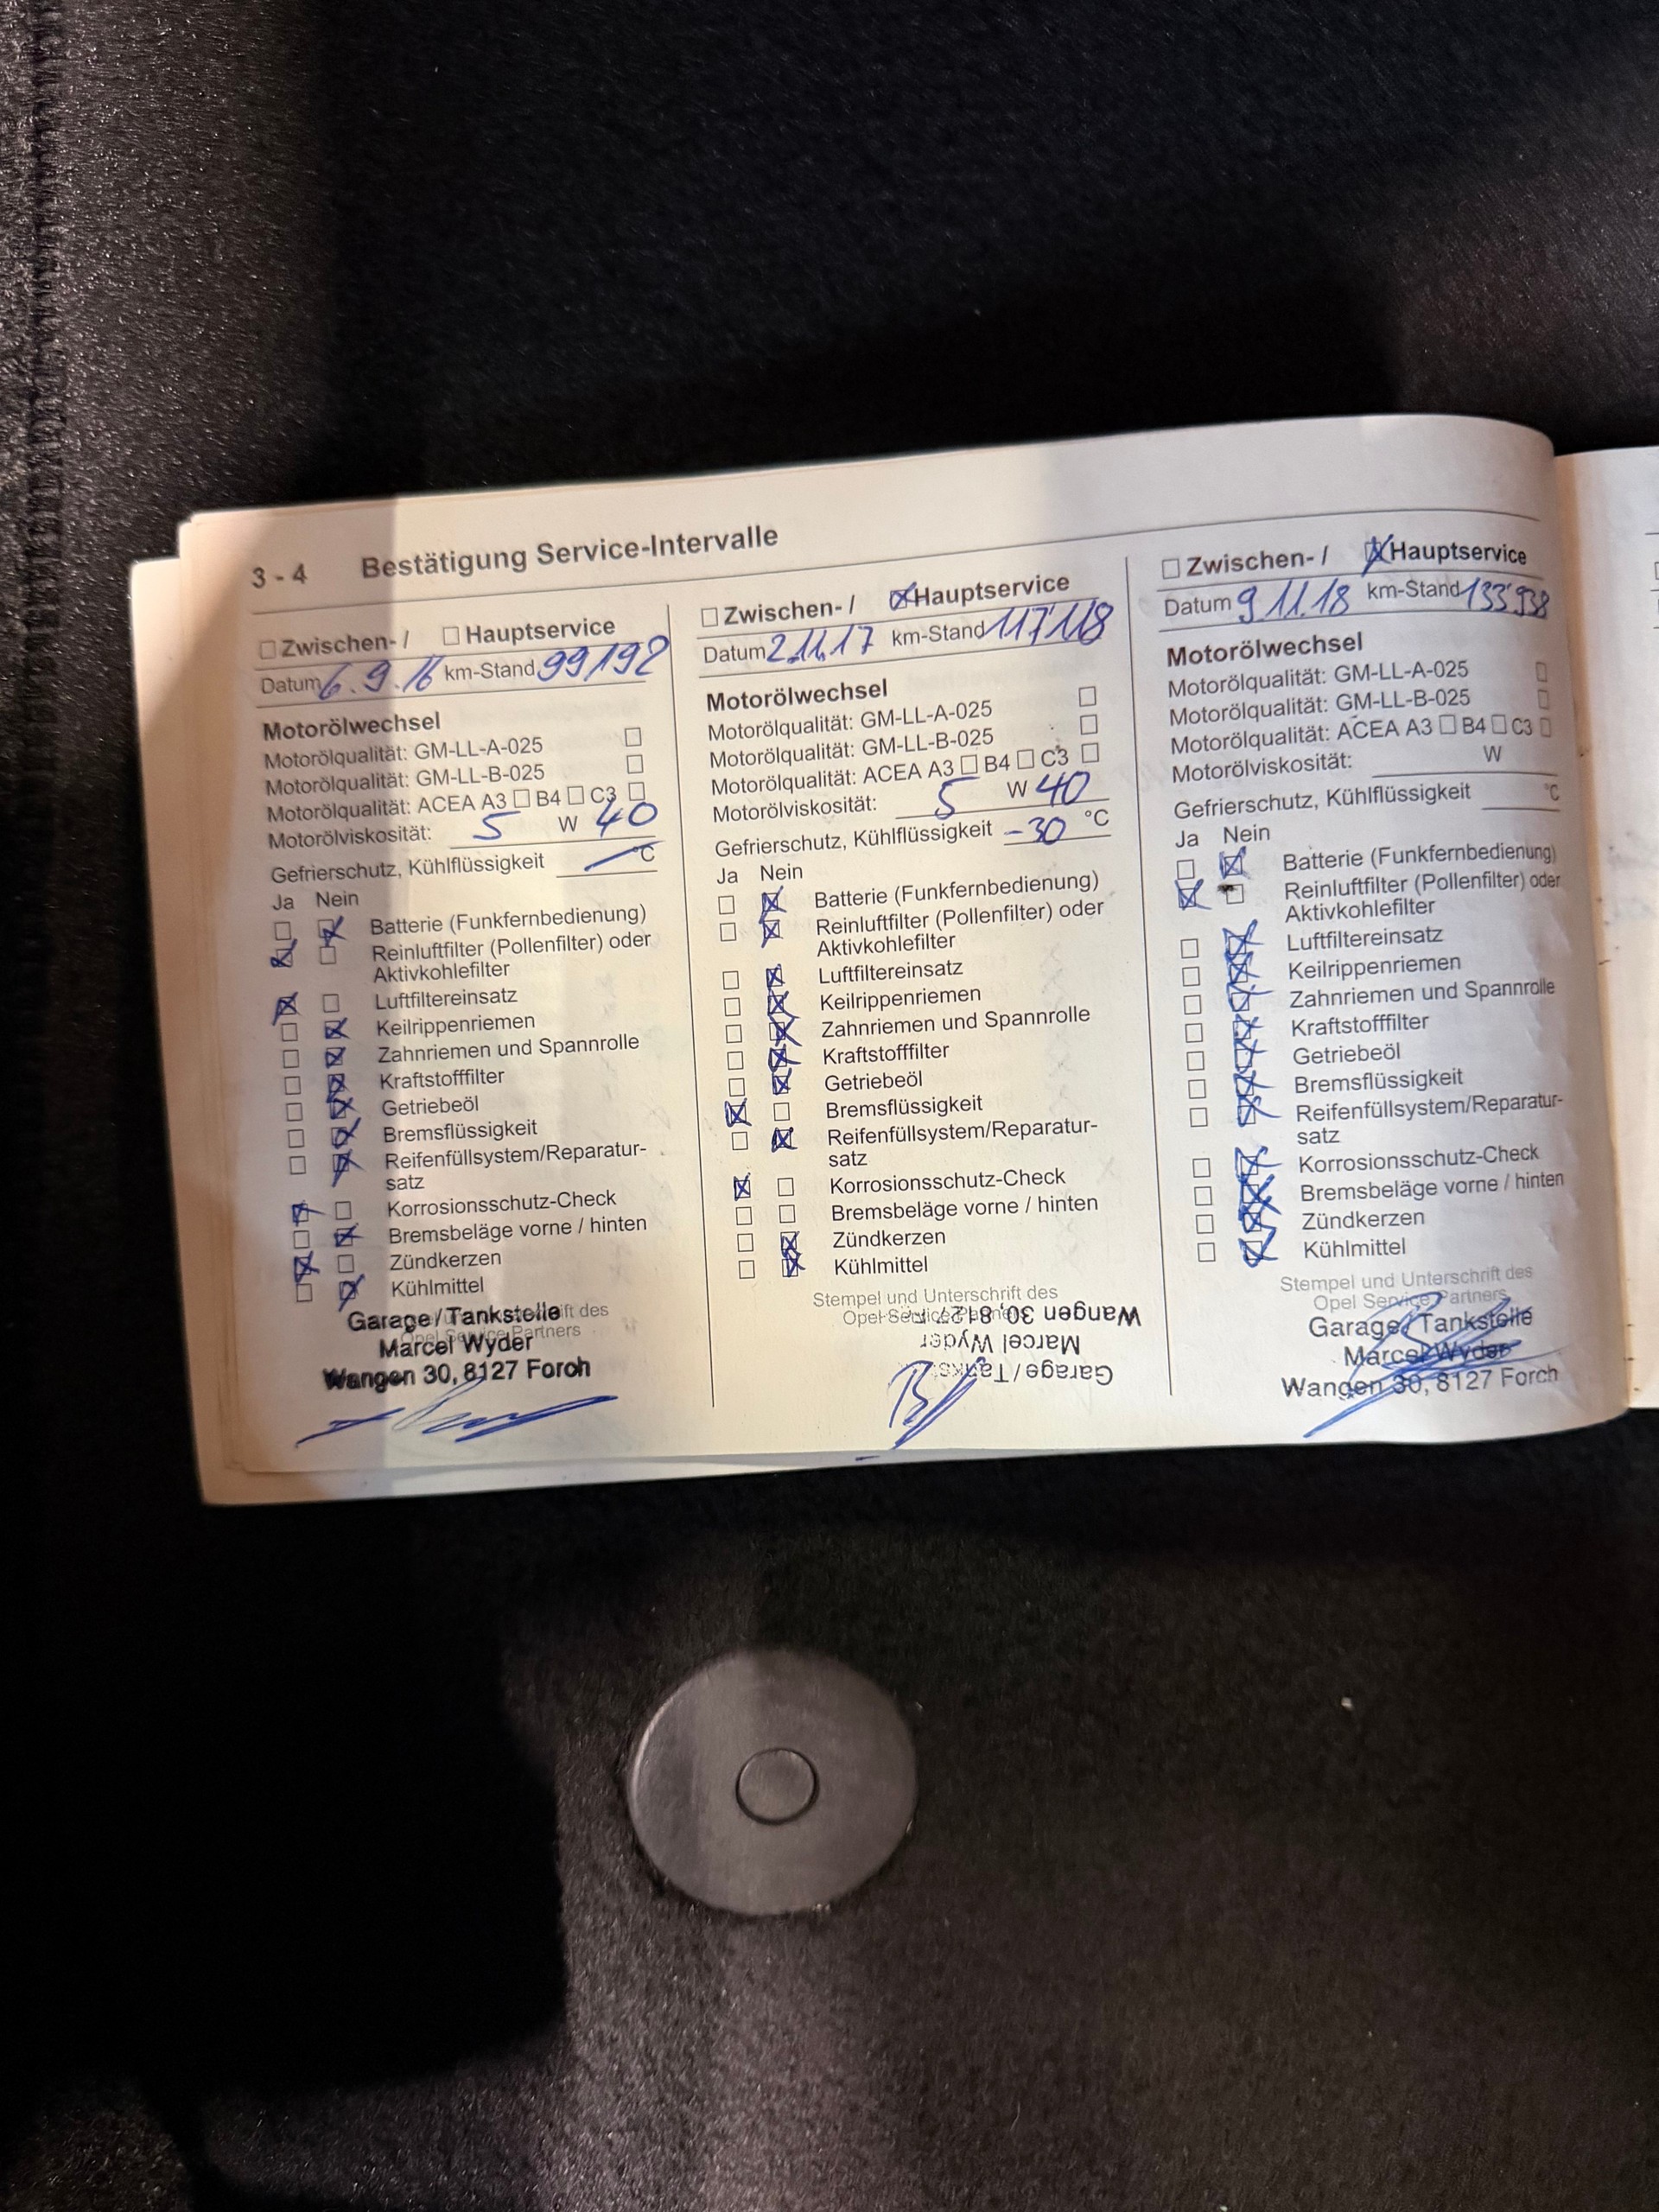 3 - 4 Bestätigung Service-Intervalle
☐ Zwischen- / ☐ Hauptservice
Datum 6.9.16 km-Stand 99192
Motorölwechsel
Motorölqualität: GM-LL-A-025 ☐
Motorölqualität: GM-LL-B-025 ☐
Motorölqualität: ACEA A3 ☐ B4 ☐ C3 ☐
Motorölviskosität: 5 W 40
Gefrierschutz, Kühlflüssigkeit °C
Ja Nein
☐ ☒ Batterie (Funkfernbedienung)
☒ ☐ Reinluftfilter (Pollenfilter) oder
Aktivkohlefilter
☒ ☐ Luftfiltereinsatz
☐ ☒ Keilrippenriemen
☐ ☒ Zahnriemen und Spannrolle
☐ ☒ Kraftstofffilter
☐ ☒ Getriebeöl
☐ ☒ Bremsflüssigkeit
☐ ☒ Reifenfüllsystem/Reparatur-
satz
☒ ☐ Korrosionsschutz-Check
☐ ☒ Bremsbeläge vorne / hinten
☒ ☐ Zündkerzen
☐ ☒ Kühlmittel
Garage / Tankstelle
Marcel Wyder
Wangen 30, 8127 Forch
☐ Zwischen- / ☒ Hauptservice
Datum 2.11.17 km-Stand 117'118
Motorölwechsel
Motorölqualität: GM-LL-A-025 ☐
Motorölqualität: GM-LL-B-025 ☐
Motorölqualität: ACEA A3 ☐ B4 ☐ C3 ☐
Motorölviskosität: 5 W 40
Gefrierschutz, Kühlflüssigkeit -30 °C
Ja Nein
☐ ☒ Batterie (Funkfernbedienung)
☐ ☒ Reinluftfilter (Pollenfilter) oder
Aktivkohlefilter
☐ ☒ Luftfiltereinsatz
☐ ☒ Keilrippenriemen
☐ ☒ Zahnriemen und Spannrolle
☐ ☒ Kraftstofffilter
☐ ☒ Getriebeöl
☒ ☐ Bremsflüssigkeit
☐ ☒ Reifenfüllsystem/Reparatur-
satz
☒ ☐ Korrosionsschutz-Check
☐ ☐ Bremsbeläge vorne / hinten
☐ ☒ Zündkerzen
☐ ☒ Kühlmittel
Stempel und Unterschrift des
Garage / Tanks
Marcel Wyder
Wangen 30, 8127
☐ Zwischen- / ☒ Hauptservice
Datum 9.11.18 km-Stand 133'938
Motorölwechsel
Motorölqualität: GM-LL-A-025 ☐
Motorölqualität: GM-LL-B-025 ☐
Motorölqualität: ACEA A3 ☐ B4 ☐ C3 ☐
Motorölviskosität: W
Gefrierschutz, Kühlflüssigkeit °C
Ja Nein
☐ ☒ Batterie (Funkfernbedienung)
☒ ☐ Reinluftfilter (Pollenfilter) oder
Aktivkohlefilter
☐ ☒ Luftfiltereinsatz
☐ ☒ Keilrippenriemen
☐ ☒ Zahnriemen und Spannrolle
☐ ☒ Kraftstofffilter
☐ ☒ Getriebeöl
☐ ☒ Bremsflüssigkeit
☐ ☒ Reifenfüllsystem/Reparatur-
satz
☐ ☒ Korrosionsschutz-Check
☐ ☒ Bremsbeläge vorne / hinten
☐ ☒ Zündkerzen
☐ ☒ Kühlmittel
Stempel und Unterschrift des
Opel Service Partners
Garage / Tankstelle
Marcel Wyder
Wangen 30, 8127 Forch